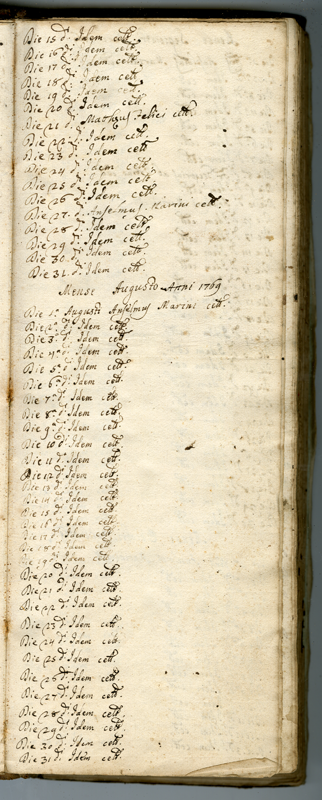 Die 15 dᵒ: Idem celt.
Die 16 dᵒ: Idem celt.
Die 17 dᵒ: Idem celt.
Die 18 dᵒ: Idem celt.
Die 19 dᵒ: Idem celt.
Die 20 dᵒ: Idem celt.
Die 21 dᵒ: Matthæus Felici celt.
Die 22 dᵒ: Idem celt.
Die 23 dᵒ: Idem celt.
Die 24 dᵒ: Idem celt.
Die 25 dᵒ: Idem celt.
Die 26 dᵒ: Idem celt.
Die 27 dᵒ: Anselmus Marius celt.
Die 28 dᵒ: Idem celt.
Die 29 dᵒ: Idem celt.
Die 30 dᵒ: Idem celt.
Die 31 dᵒ: Idem celt.
Mense Augusto Anni 1769
Die 1ᵃ Augusti Anselmus Marius celt.
Die 2ᵃ dᵒ: Idem celt.
Die 3ᵃ dᵒ: Idem celt.
Die 4ᵃ dᵒ: Idem celt.
Die 5ᵃ dᵒ: Idem celt.
Die 6ᵃ dᵒ: Idem celt.
Die 7ᵃ dᵒ: Idem celt.
Die 8ᵃ dᵒ: Idem celt.
Die 9ᵃ dᵒ: Idem celt.
Die 10 dᵒ: Idem celt.
Die 11 dᵒ: Idem celt.
Die 12 dᵒ: Idem celt.
Die 13 dᵒ: Idem celt.
Die 14 dᵒ: Idem celt.
Die 15 dᵒ: Idem celt.
Die 16 dᵒ: Idem celt.
Die 17 dᵒ: Idem celt.
Die 18 dᵒ: Idem celt.
Die 19 dᵒ: Idem celt.
Die 20 dᵒ: Idem celt.
Die 21 dᵒ: Idem celt.
Die 22 dᵒ: Idem celt.
Die 23 dᵒ: Idem celt.
Die 24 dᵒ: Idem celt.
Die 25 dᵒ: Idem celt.
Die 26 dᵒ: Idem celt.
Die 27 dᵒ: Idem celt.
Die 28 dᵒ: Idem celt.
Die 29 dᵒ: Idem celt.
Die 30 dᵒ: Idem celt.
Die 31 dᵒ: Idem celt.